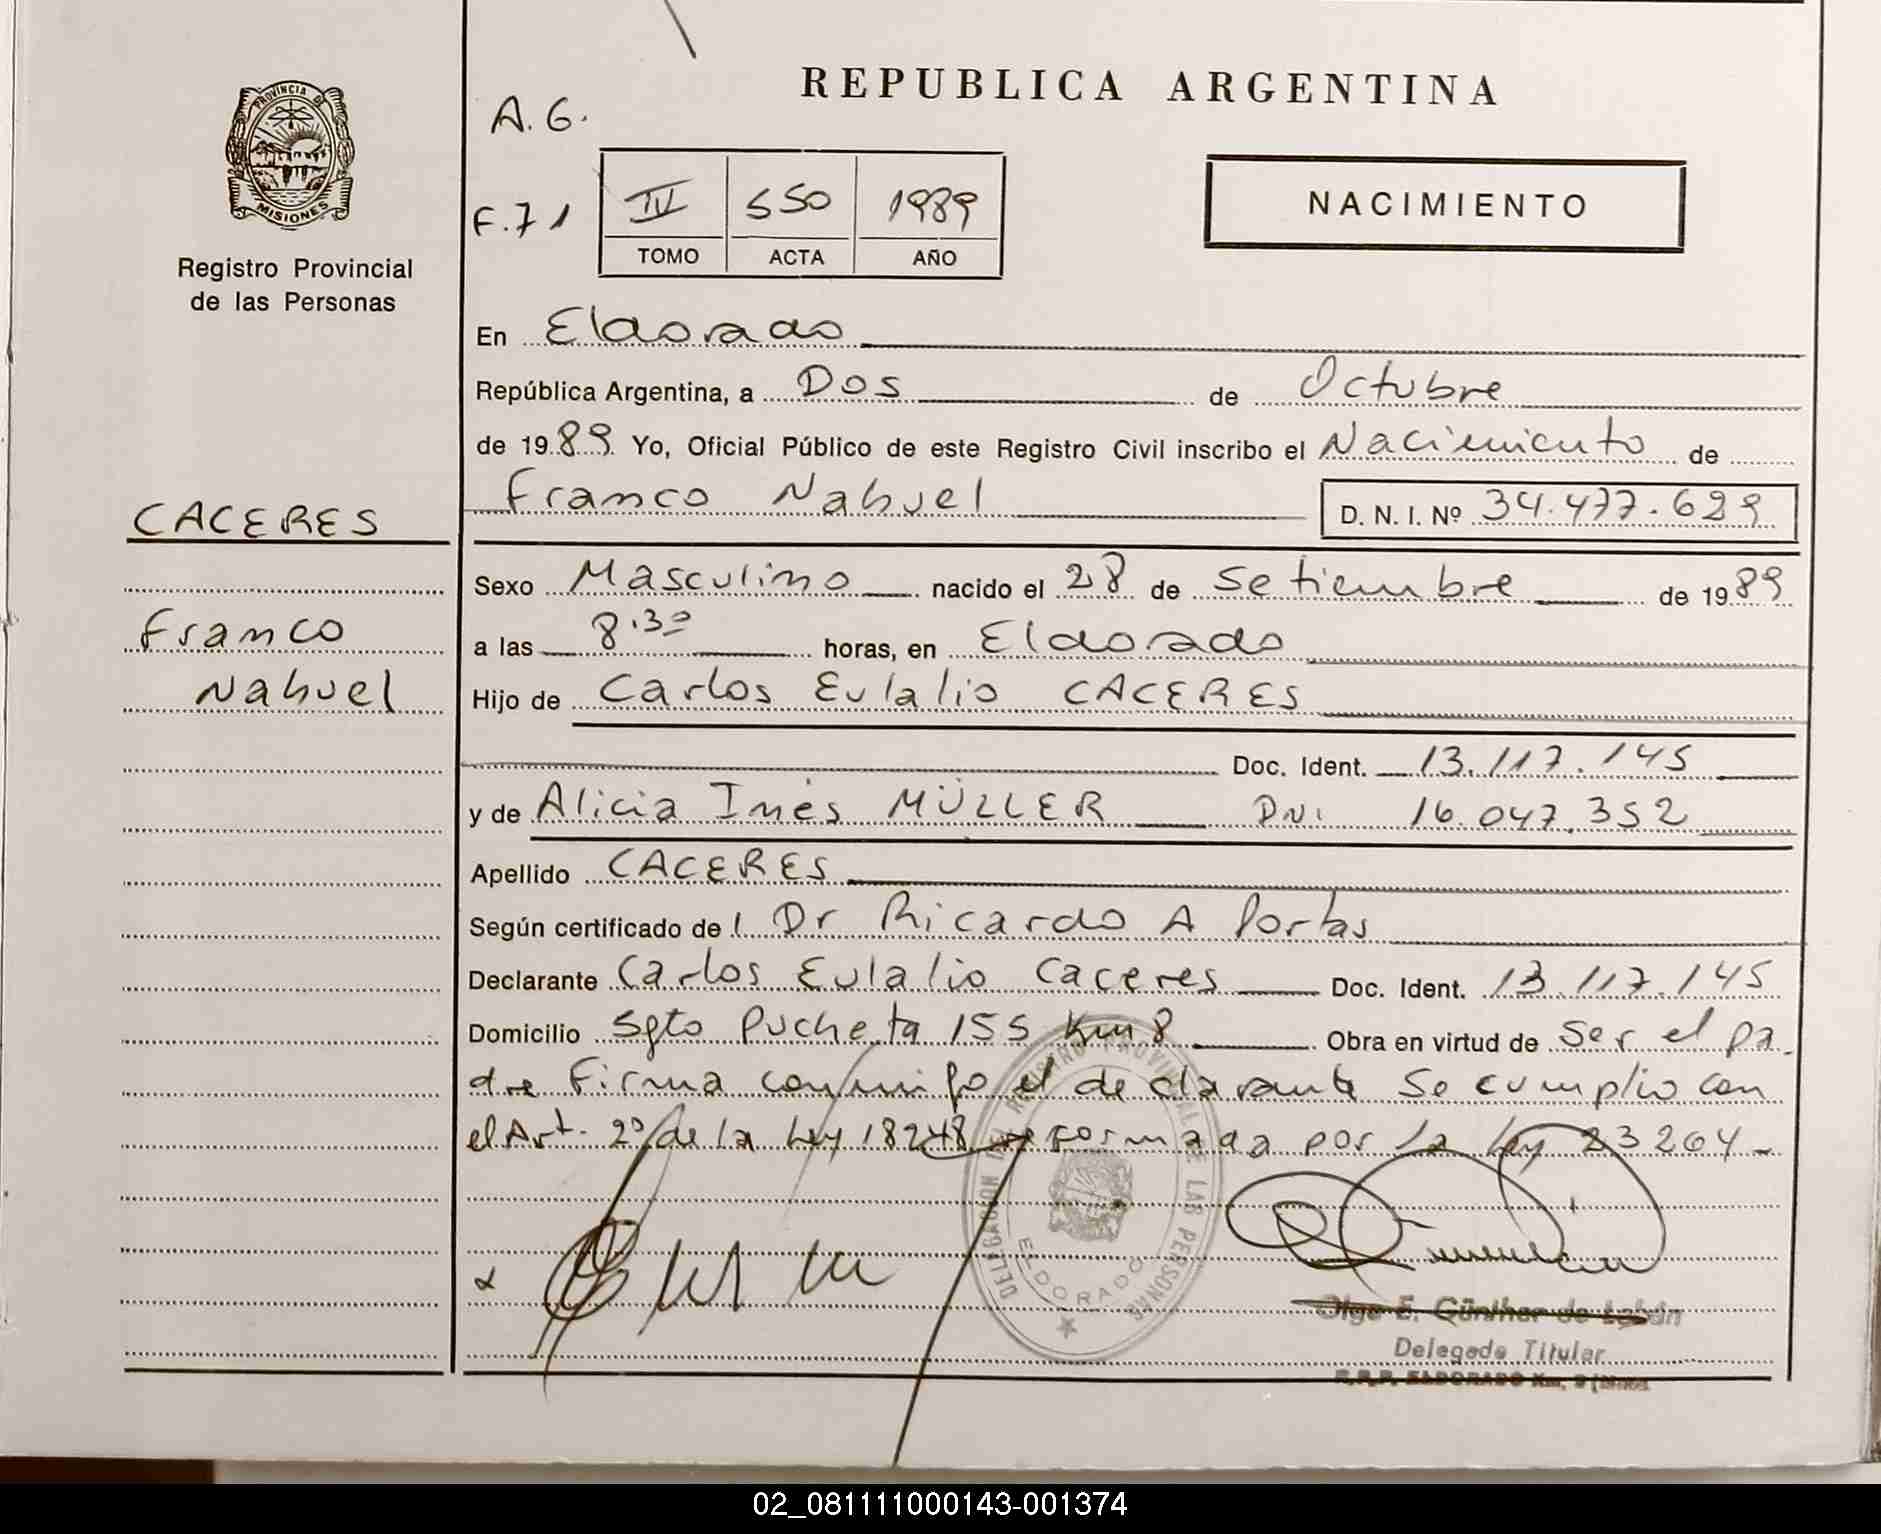 REPUBLICA ARGENTINA
PROVINCIA DE
MISIONES
Registro Provincial
de las Personas
A.G.
F.71
IV 550 1989
TOMO ACTA AÑO
NACIMIENTO
En Eldorado
República Argentina, a Dos de Octubre
de 1989 Yo, Oficial Público de este Registro Civil inscribo el Nacimiento de
Franco Nahuel D. N. I. Nº 34.477.629
CACERES
Franco
Nahuel
Sexo Masculino nacido el 28 de Setiembre de 1989
a las 8.30 horas, en Eldorado
Hijo de Carlos Eulalio CACERES
Doc. Ident. 13.117.145
y de Alicia Inés MÜLLER DNI 16.047.352
Apellido CACERES
Según certificado de l Dr Ricardo A Portas
Declarante Carlos Eulalio Caceres Doc. Ident. 13.117.145
Domicilio Sgto Pucheta 155 Km 8 Obra en virtud de Ser el pa
dre Firma conmigo el declarante Se cumplio con
el Art. 2º de la Ley 18248 reformada por la Ley 23264-
DELEGACION DEL REGISTRO PROVINCIAL DE LAS PERSONAS
ELDORADO
Olga E. Günther de
Delegada Titular
R.R.P. ELDORADO Km. 9
02_081111000143-001374